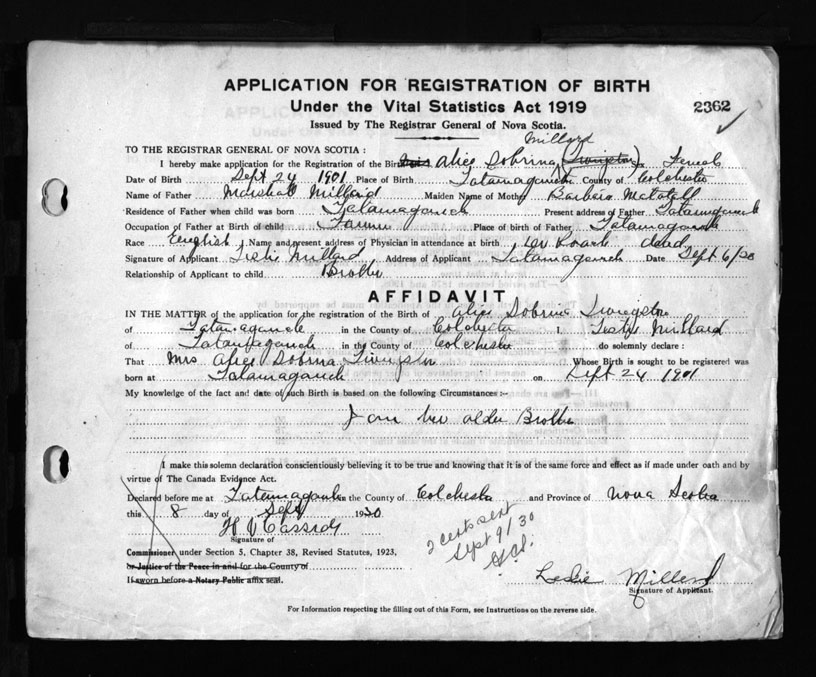 APPLICATION FOR REGISTRATION OF BIRTH
Under the Vital Statistics Act 1919
2362
Issued by The Registrar General of Nova Scotia.
Millard
TO THE REGISTRAR GENERAL OF NOVA SCOTIA :
I hereby make application for the Registration of the Birth Alice Dobrina (Livingston) Female
Date of Birth Sept 24 1901 Place of Birth Tatamagouch County of Colchester
Name of Father Marshall Millard Maiden Name of Mother Barbara
Residence of Father when child was born Tatamagouch Present address of Father Tatamagouch
Occupation of Father at Birth of child Farmer Place of birth of Father Tatamagouch
Race English Name and present address of Physician in attendance at birth Dr Roach dead
Signature of Applicant Leslie Millard Address of Applicant Tatamagouch Date Sept 6/30
Relationship of Applicant to child Brother
AFFIDAVIT
IN THE MATTER of the application for the registration of Birth of Alice Dobrina Livingston
of Tatamagouch in the County of Colchester I, Leslie Millard
of Tatamagouch in the County of Colchester do solemnly declare :
That Mrs Alice Dobrina Livingston Whose Birth is sought to be registered was
born at Tatamagouch on Sept 24 1901
My knowledge of the fact and date of such Birth is based on the following Circumstances :-
I am her older Brother
I make this solemn declaration conscientiously believing it to be true and knowing that it is of the same force and effect as if made under oath and by
virtue of The Canada Evidence Act.
Declared before me at Tatamagouch in the County of Colchester and Province of Nova Scotia
this 8 day of Sept 1930
H J Cassidy
Signature of
2 certs sent
Sept 9/30
Commissioner under Section 5, Chapter 38, Revised Statutes, 1923,
or Justice of the Peace in and for the County of
If sworn before a Notary Public affix seal.
Leslie Millard
Signature of Applicant.
For Information respecting the filling out of this Form, see Instructions on the reverse side.